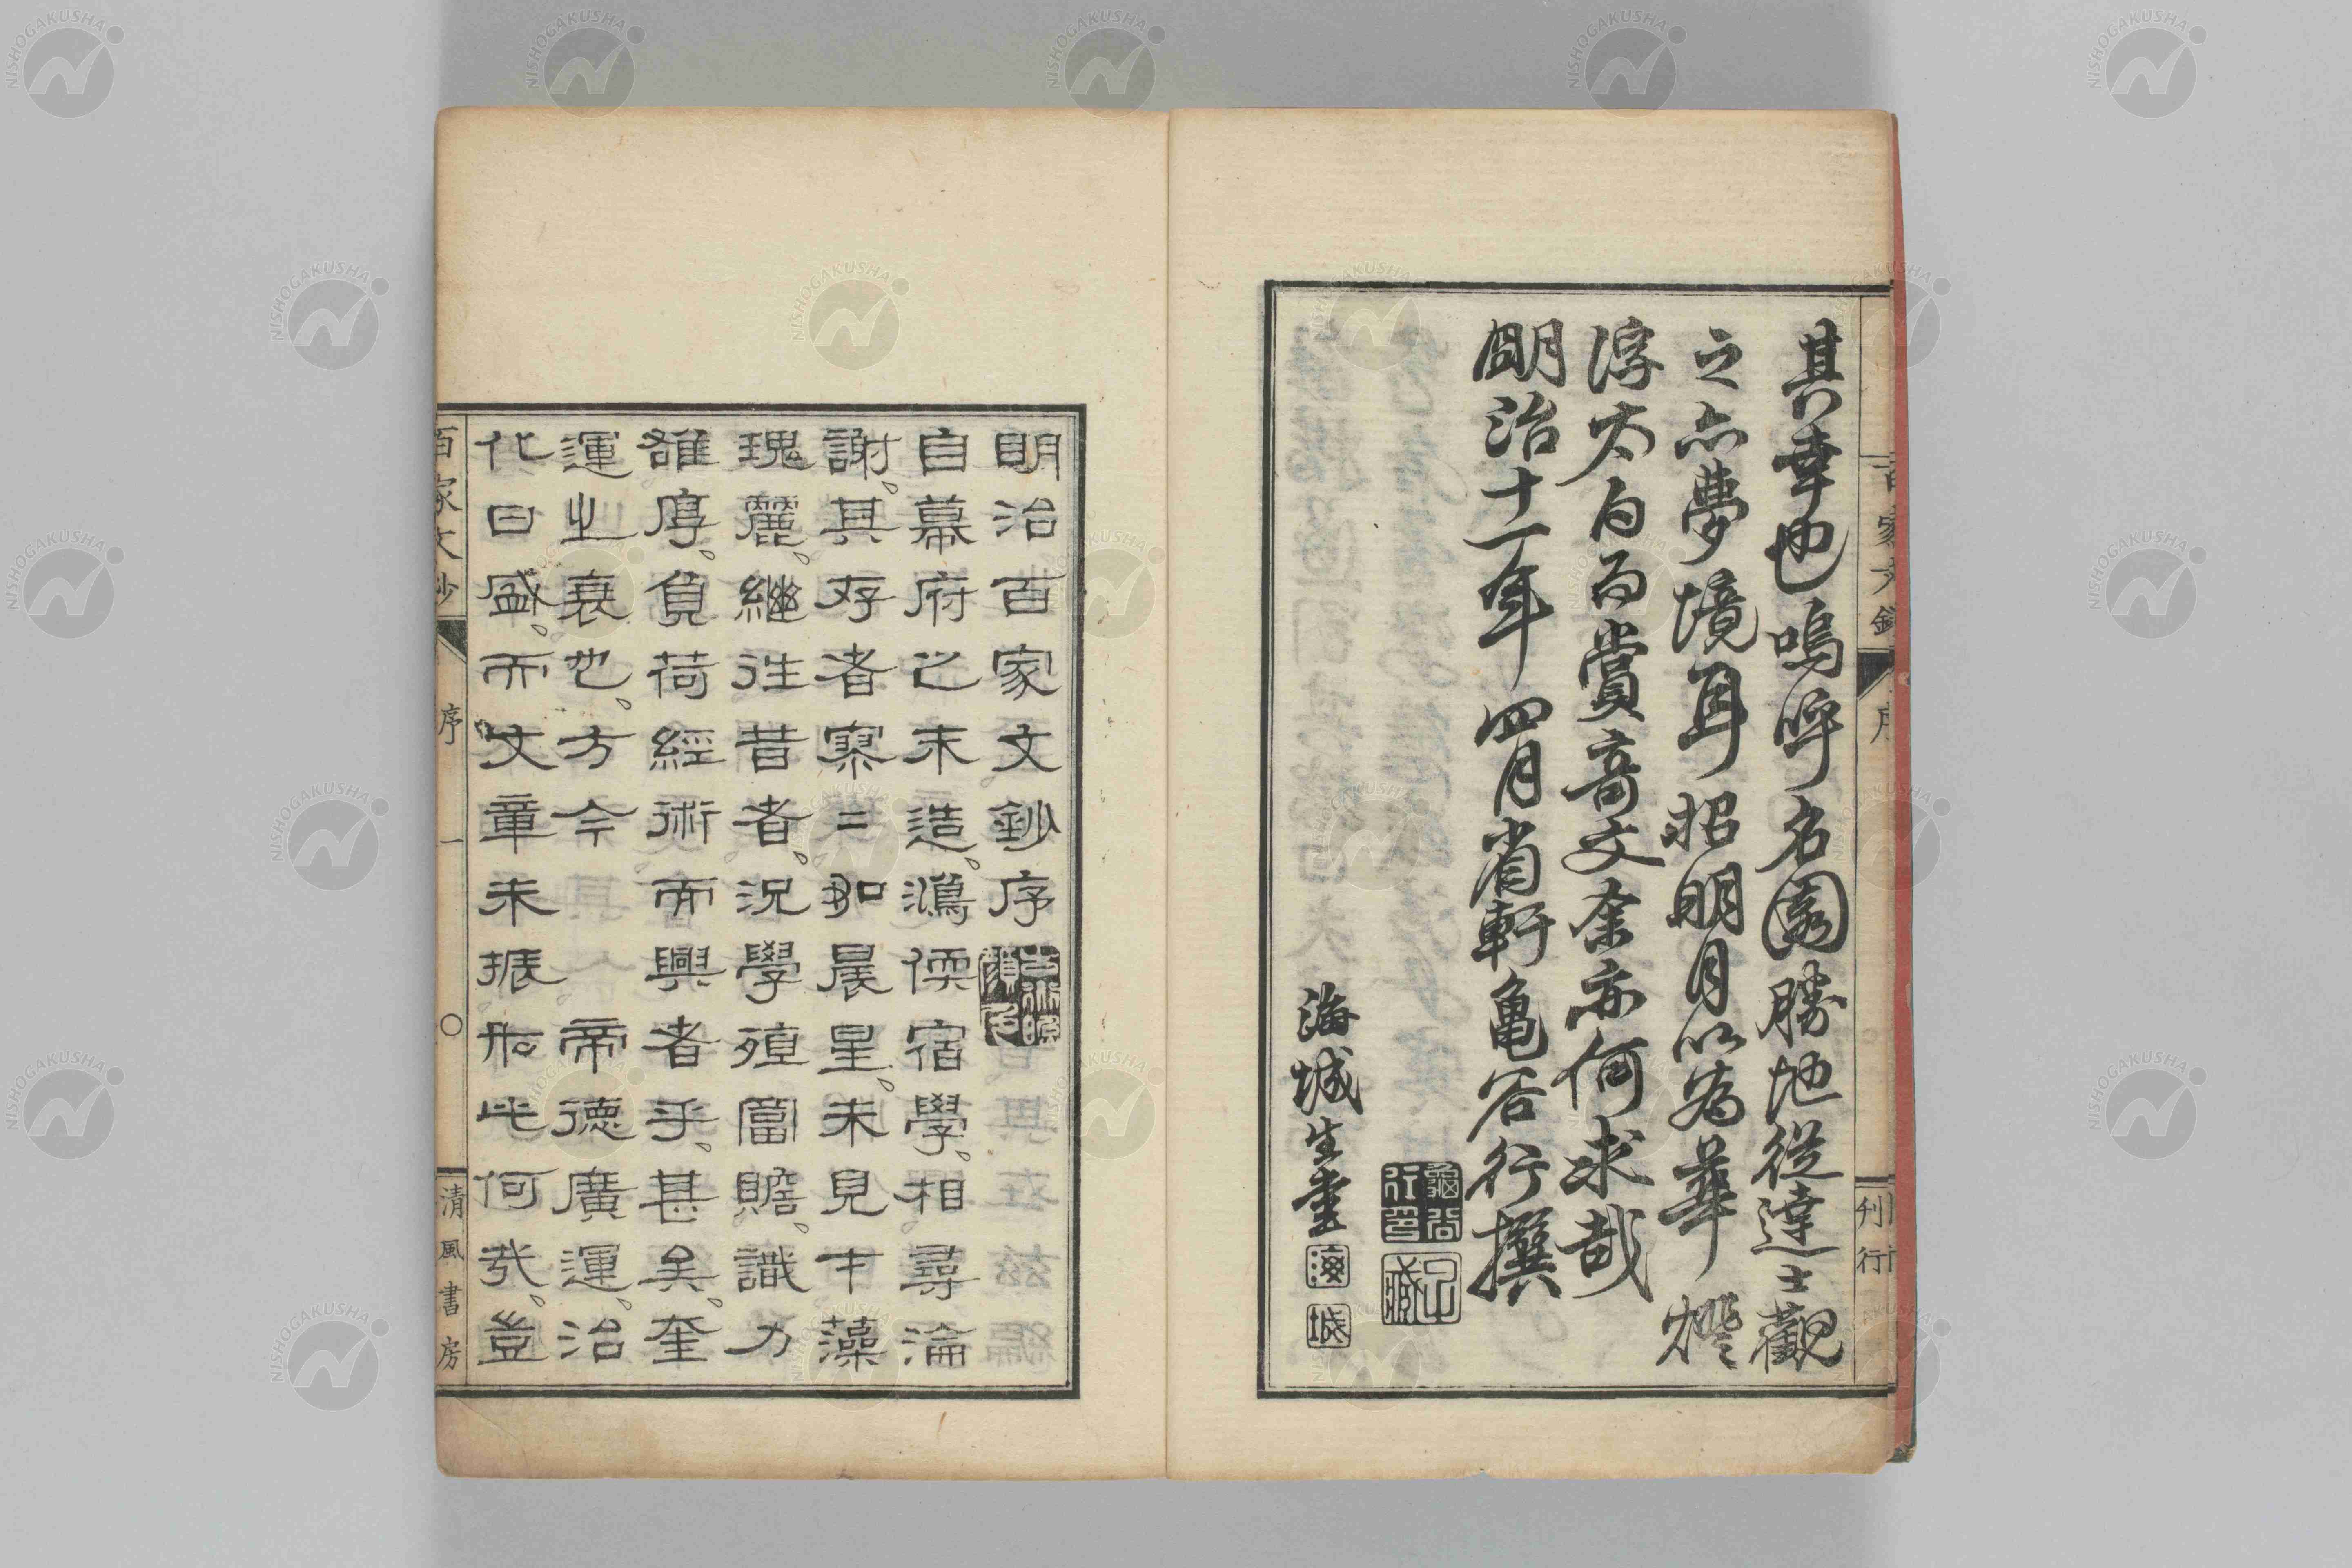 其幸也嗚呼名園勝地從達士觀
之亦夢境耳招明月以為華燈
浮太白而賞奇文奎亦何求哉
明治十一年四月省軒亀谷行撰
海城生書
海城
百家文鈔
序
刊行
明治百家文鈔序
自幕府之末造鴻儒宿學相尋淪
謝其存者寥二如晨星未見才藻
瑰麗繼往昔者況學殖富贍識力
雄厚負荷經術而興者乎甚矣奎
運之衰也方今帝德廣運治
化日盛而文章未振於此何哉豈
百家文鈔
序
一
清風書房
NISHOGAKUSHA